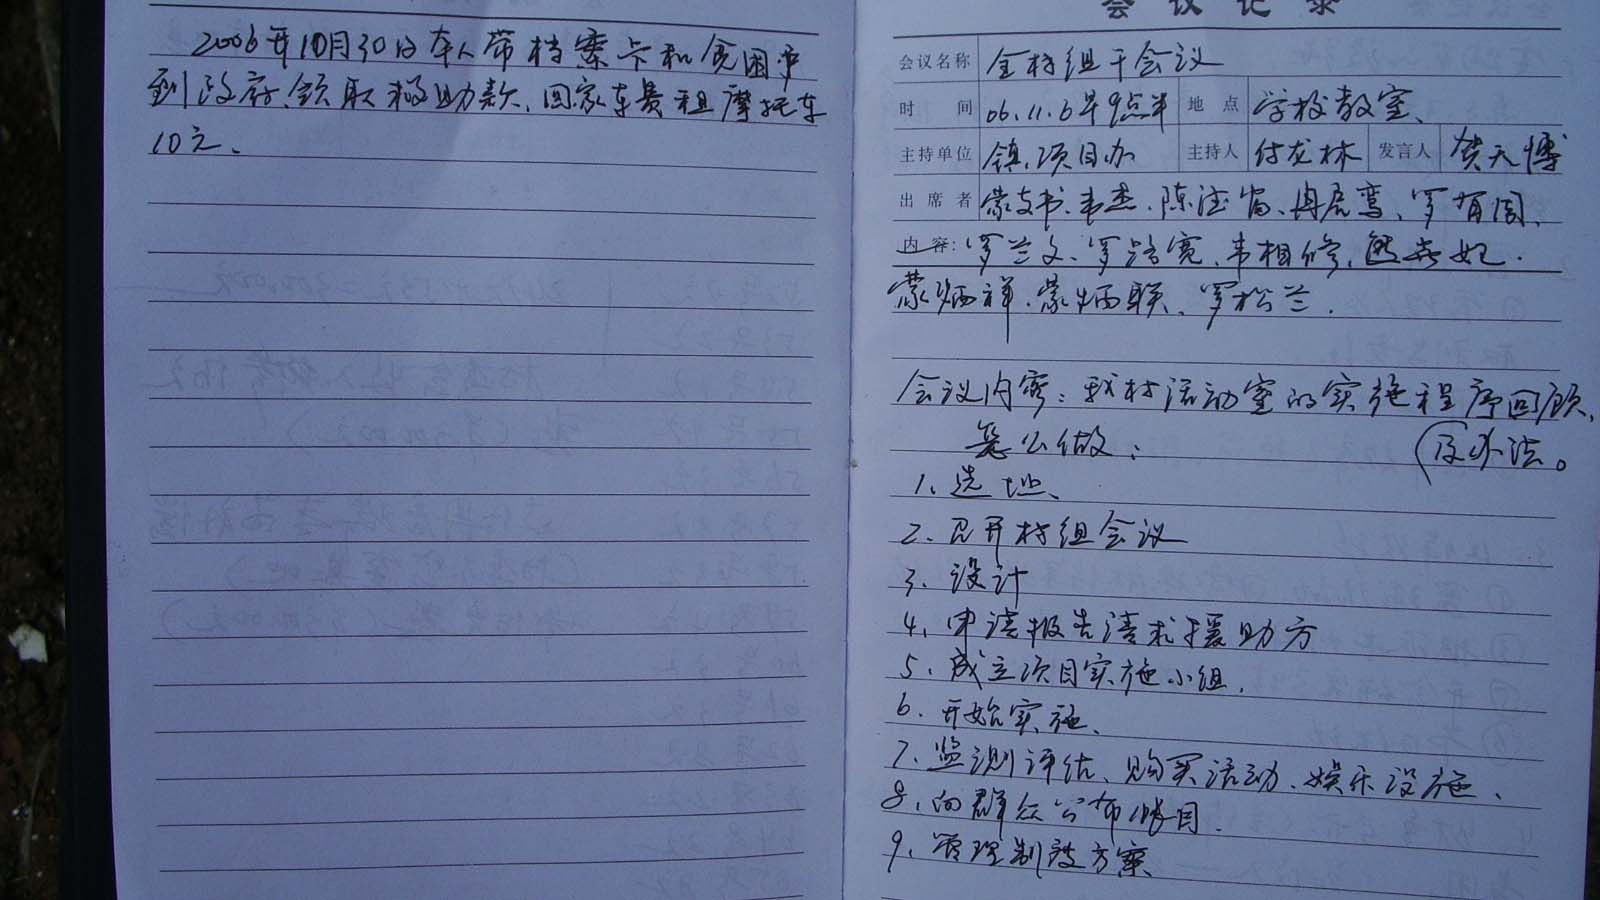 2006年10月30日本人带档案卡和贫困户
到政府领取援助款、回家车费租摩托车
10元、
会议记录
会议名称 全村组干会议
时间 06.11.6早9点半 地点 学校教室、
主持单位 镇、项目办 主持人 付龙林 发言人 贺天博
出席者 蒙支书、韦杰、陈 罗
内容: 罗兰文、罗 韦相修、
蒙炳祥、蒙炳联、罗松兰.
会议内容：我村活动室的实施程序回顾,
怎么做： (及办法。
1、选址、
2、召开村组会议
3、设计
4、申请报告请求援助方
5、成立项目实施小组.
6、开始实施、
7、监测评估、购买活动、娱乐设施、
8、向群众公布账目.
9、管理制度方案